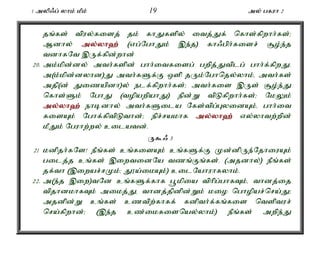 1 அலிஃப் லாம் மீம் 19 அல் பகரா 2
தங்கள் விரல்களைத் தம் காதுகளில் வைத்துக் கொள்கிறார்கள்;
ஆனால் அல்லாஹ் (எப்போதும் இந்த) காஃபிர்களைச் சூழ்ந்த
வனாகவே இருக்கின்றான்
20. அம்மின்னல் அவர்களின் பார்வைகளைப் பறித்துவிடப் பார்க்கிறது.
அ(ம்மின்னலான)து அவர்களுக்கு ஒளி தரும்போதெல்லாம், அவர்கள்
அதி(ன் துணையின)ல் நடக்கிறார்கள்; அவர்களை இருள் சூழ்ந்து
கொள்ளும் போது (வழியறியாது) நின்று விடுகிறார்கள்; மேலும்
அல்லாஹ் நாடினால் அவர்களுடைய கேள்விப்புலனையும், பார்வை
களையும் போக்கிவிடுவான்; நிச்சயமாக அல்லாஹ் எல்லாவற்றின்
மீதும் பேராற்றல் உடையவன்.
ருகூஃ 3
21 மனிதர்களே! நீங்கள் உங்களையும் உங்களுக்கு முன்னிருந்தோரையும்
படைத்த உங்கள் இறைவனையே வணங்குங்கள். (அதனால்) நீங்கள்
தக்வா (இறையச்சமும்; தூய்மையும்) உடையோராகலாம்.
22. அ(ந்த இறை)வனே உங்களுக்காக பூமியை விரிப்பாகவும், வானத்தை
விதானமாகவும் அமைத்து, வானத்தினின்றும் மழை பொழியச்செய்து;
அதனின்று உங்கள் உணவிற்காகக் கனிவர்க்கங்களை வெளிவரச்
செய்கிறான்; (இந்த உண்மைகளையெல்லாம்) நீங்கள் அறிந்து